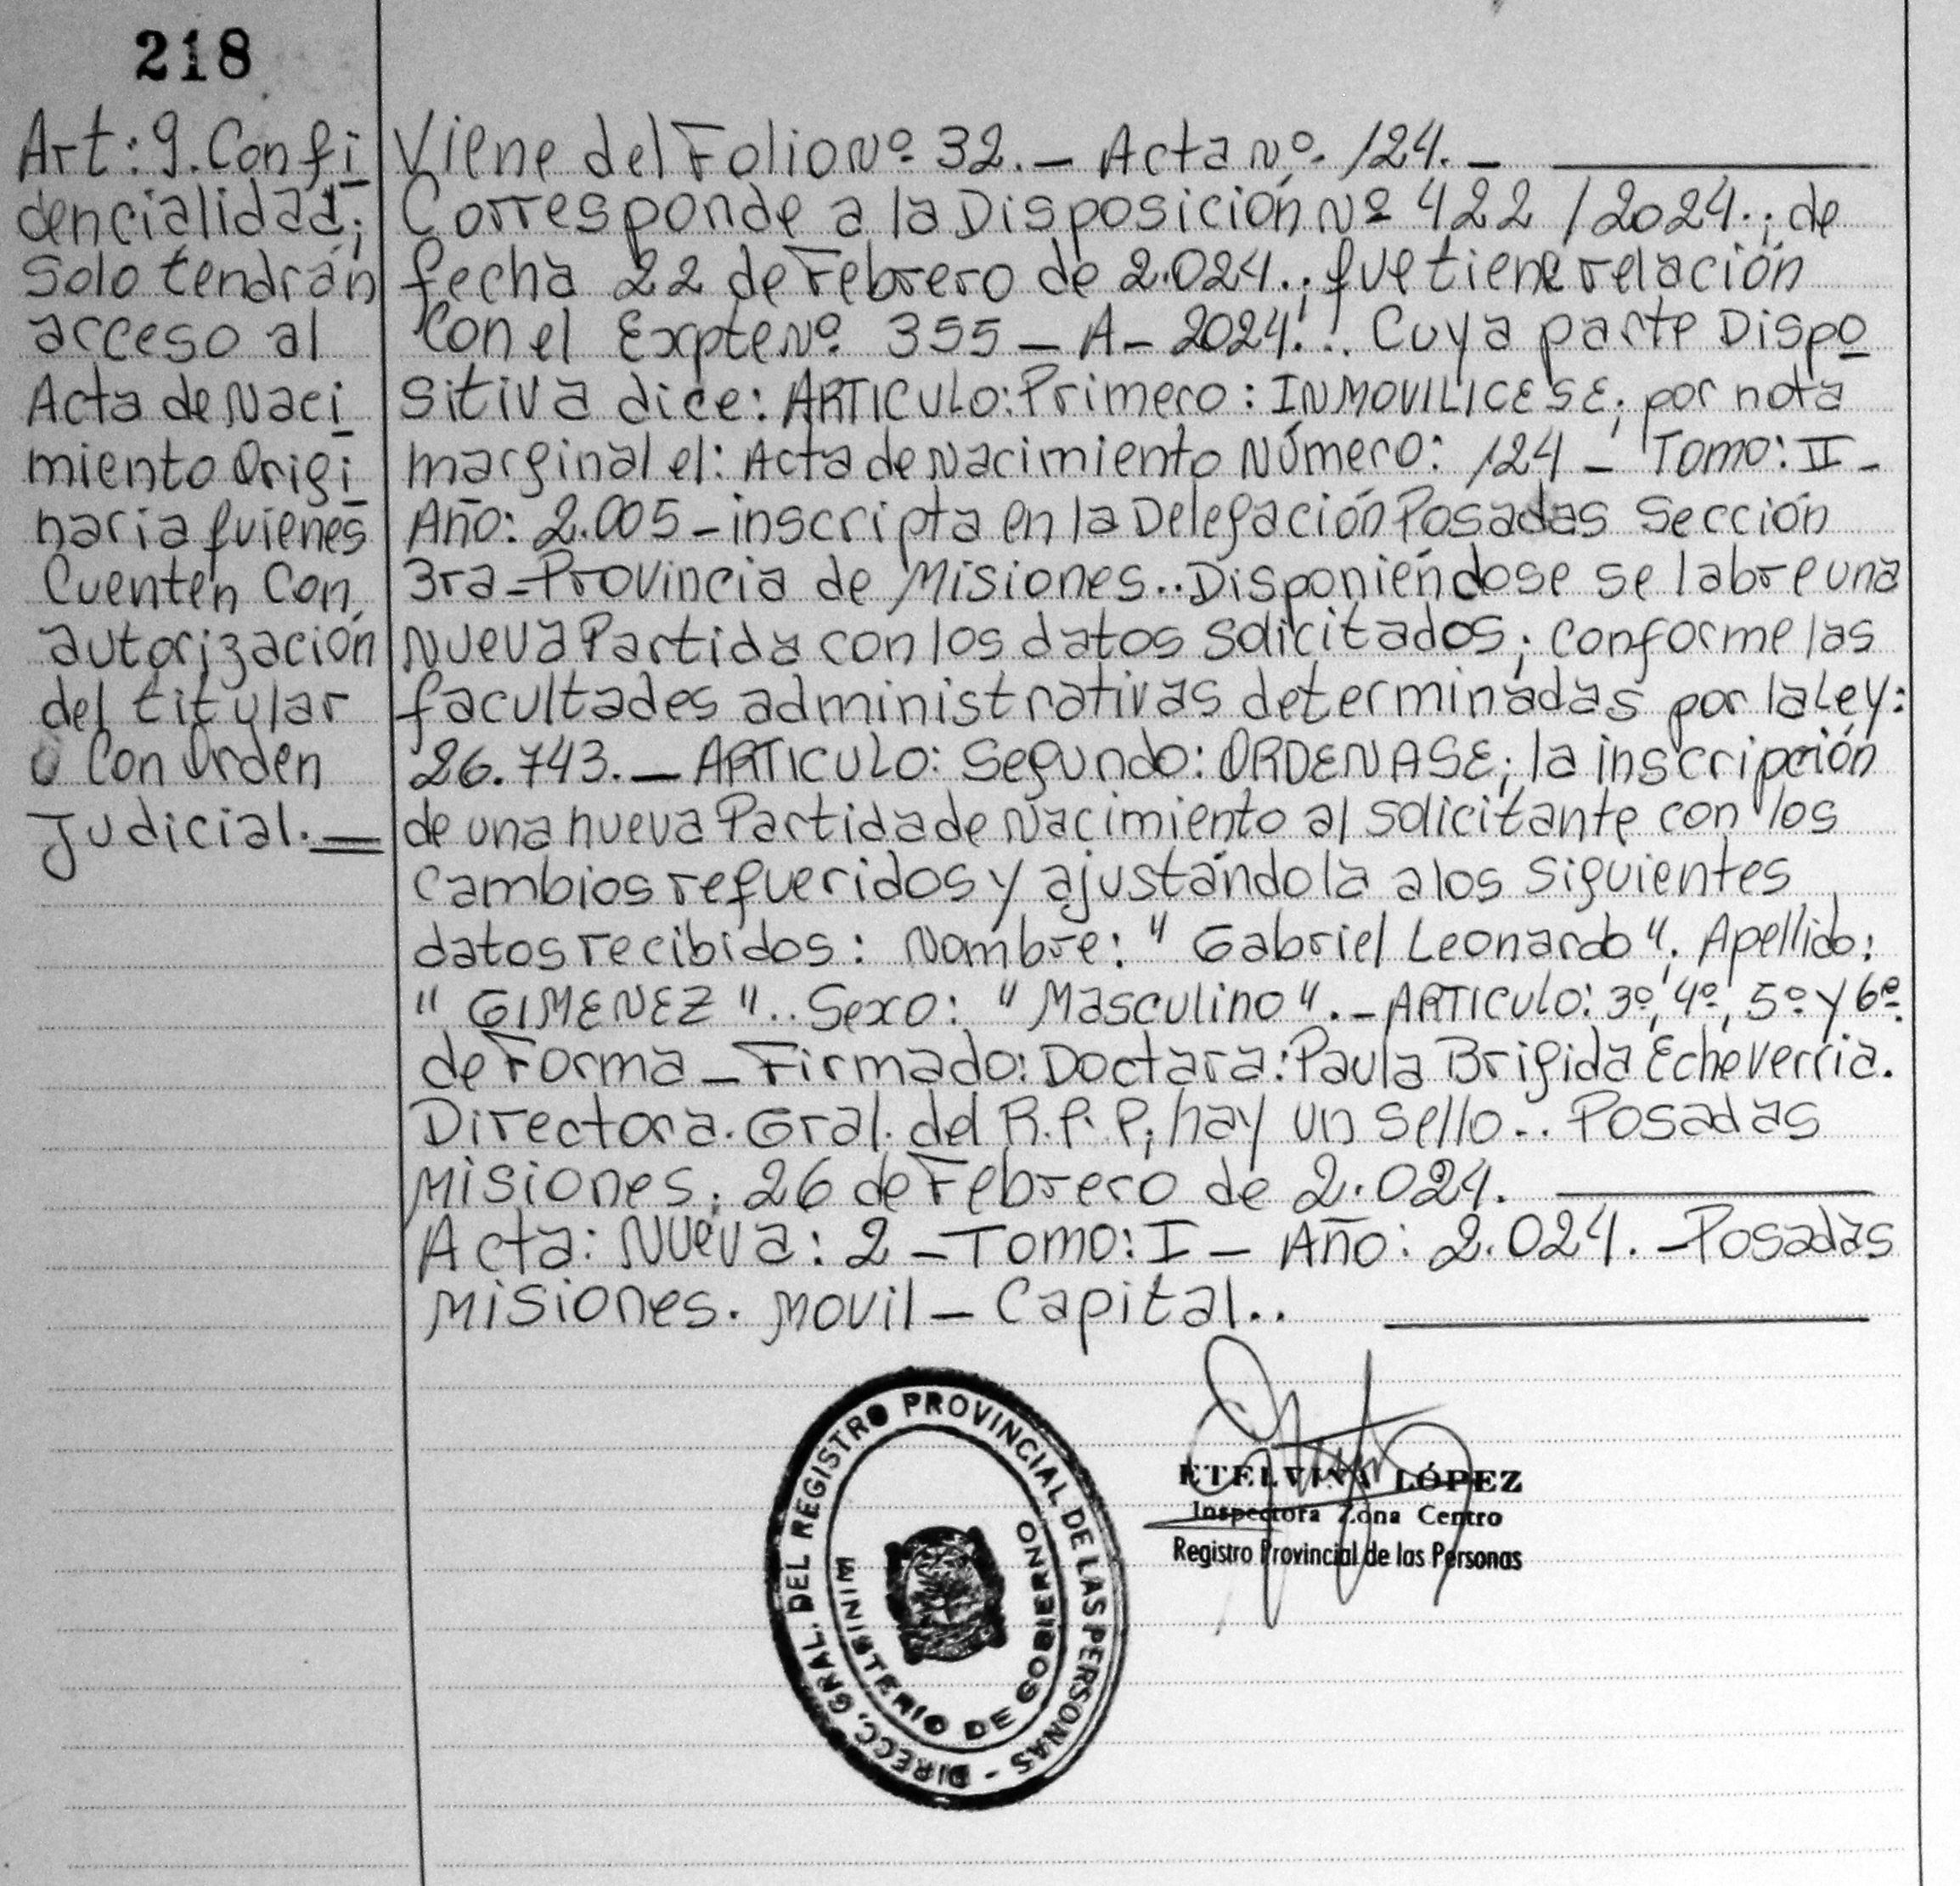 218
Art: 9. Confi
dencialidad;
Solo tendrán
acceso al
Acta de Naci
miento Origi
naria quienes
Cuenten Con
autorización
del titular
ú Con Orden
Judicial.—
Viene del Folio Nº 32.— Acta Nº 124.—
Corresponde a la Disposición Nº 422/2024.; de
fecha 22 de Febrero de 2.024.; que tiene relación
Con el Expte Nº 355 – A – 2024... Cuya parte Dispo
sitiva dice: ARTICULO: Primero: INMOVILICESE; por nota
marginal el: Acta de Nacimiento Número: 124 – Tomo: II –
Año: 2.005 – inscripta en la Delegación Posadas Sección
3ra – Provincia de Misiones.. Disponiéndose se labre una
Nueva Partida con los datos solicitados; conforme las
facultades administrativas determinadas por la Ley:
26.743.— ARTICULO: Segundo: ORDENASE; la inscripción
de una nueva Partida de Nacimiento al solicitante con los
Cambios requeridos y ajustándola a los siguientes
datos recibidos: Nombre: "Gabriel Leonardo". Apellido:
"GIMENEZ".. Sexo: "Masculino". – ARTICULO: 3º, 4º, 5º y 6º
de Forma – Firmado: Doctara: Paula Brigida Echeverria.
Directora. Gral. del R.P.P; hay un sello.. Posadas
Misiones; 26 de Febrero de 2.024.
Acta: Nueva: 2 – Tomo: I – Año: 2.024. – Posadas
Misiones. Movil – Capital..
DIRECC. GRAL. DEL REGISTRO PROVINCIAL DE LAS PERSONAS -
MINISTERIO DE GOBIERNO
ETELVINA LÓPEZ
Inspectora Zona Centro
Registro Provincial de las Personas